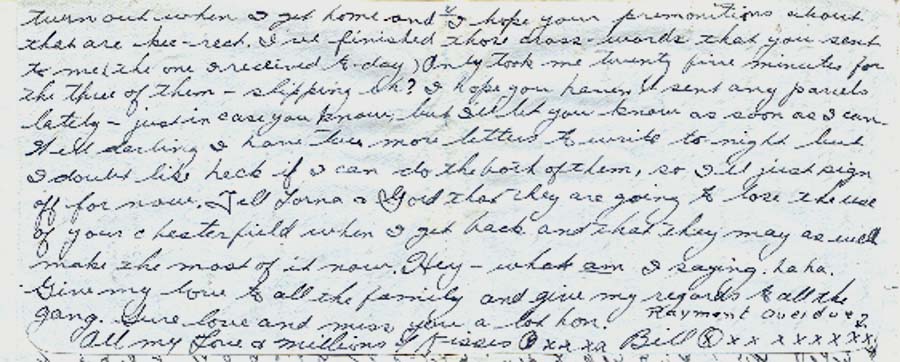 turn out when I get home and I hope your premonitions about
that are kee-rect. I've finished those cross-words that you sent
to me (the one I received to-day) Only took me twenty five minutes for
the three of them - slipping eh? I hope you haven't sent any parcels
lately - just in case you know, but I'll let you know as soon as I can.
Well darling I have two more letters to write to-night but
I doubt like heck if I can do the both of them, so I'll just sign
off for now. Tell Lorna & Gord that they are going to lose the use
of your chesterfield when I get back and that they may as well
make the most of it now. Hey - what am I saying. haha.
Give my love to all the family and give my regards to all the
gang. Sure love and miss you a lot hon. Payment Overdue?
All my Love & millions of Kisses xxxx Bill xx xxxxxx